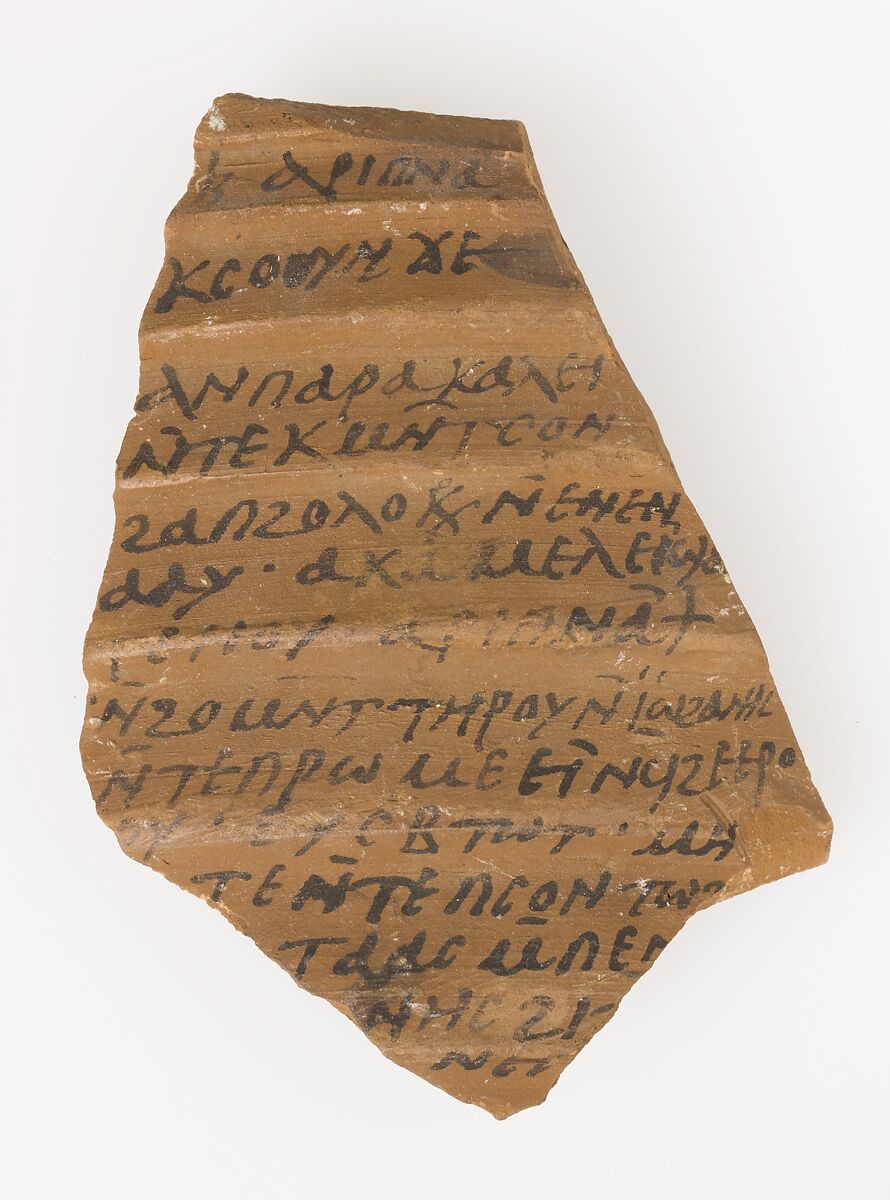 ⳁ ⲁⲣⲓⲡⲛⲁ
ⲕⲥⲟⲟⲩⲛ ϫⲉ
ⲁⲛⲡⲁⲣⲁⲕⲁⲗⲉⲓ
ⲛ̄ⲧⲉⲕⲙⲛ̄ⲧⲥⲟⲛ
ϩⲁⲡϩⲟⲗⲟⲕ/ ⲛ̄ⲉⲛⲉⲛ
ⲁⲁⲩ · ⲁⲕⲁⲙⲉⲗⲉⲓ
ⲁⲣⲓⲡⲛⲁ̄ϯ
ⲛ̄ϩⲟⲙⲛⲧ ⲧⲏⲣⲟⲩ ⲛ̄ⲓ̈ⲱϩⲁⲛⲛⲏⲥ
ⲛ̄ⲧⲉⲡⲣⲱⲙⲉ ⲉⲓ ⲛϥϩⲉ ⲉⲣⲟ
ⲟⲩ ⲉⲩⲥⲃⲧⲱⲧ · ⲙⲛ
ⲧⲉ ⲛ̄ⲧⲉⲡⲥⲟⲛ
ⲧⲁⲁⲥ ⲙⲡⲉⲛ
ⲛⲏⲥ ϩⲓ
ⲛⲉ